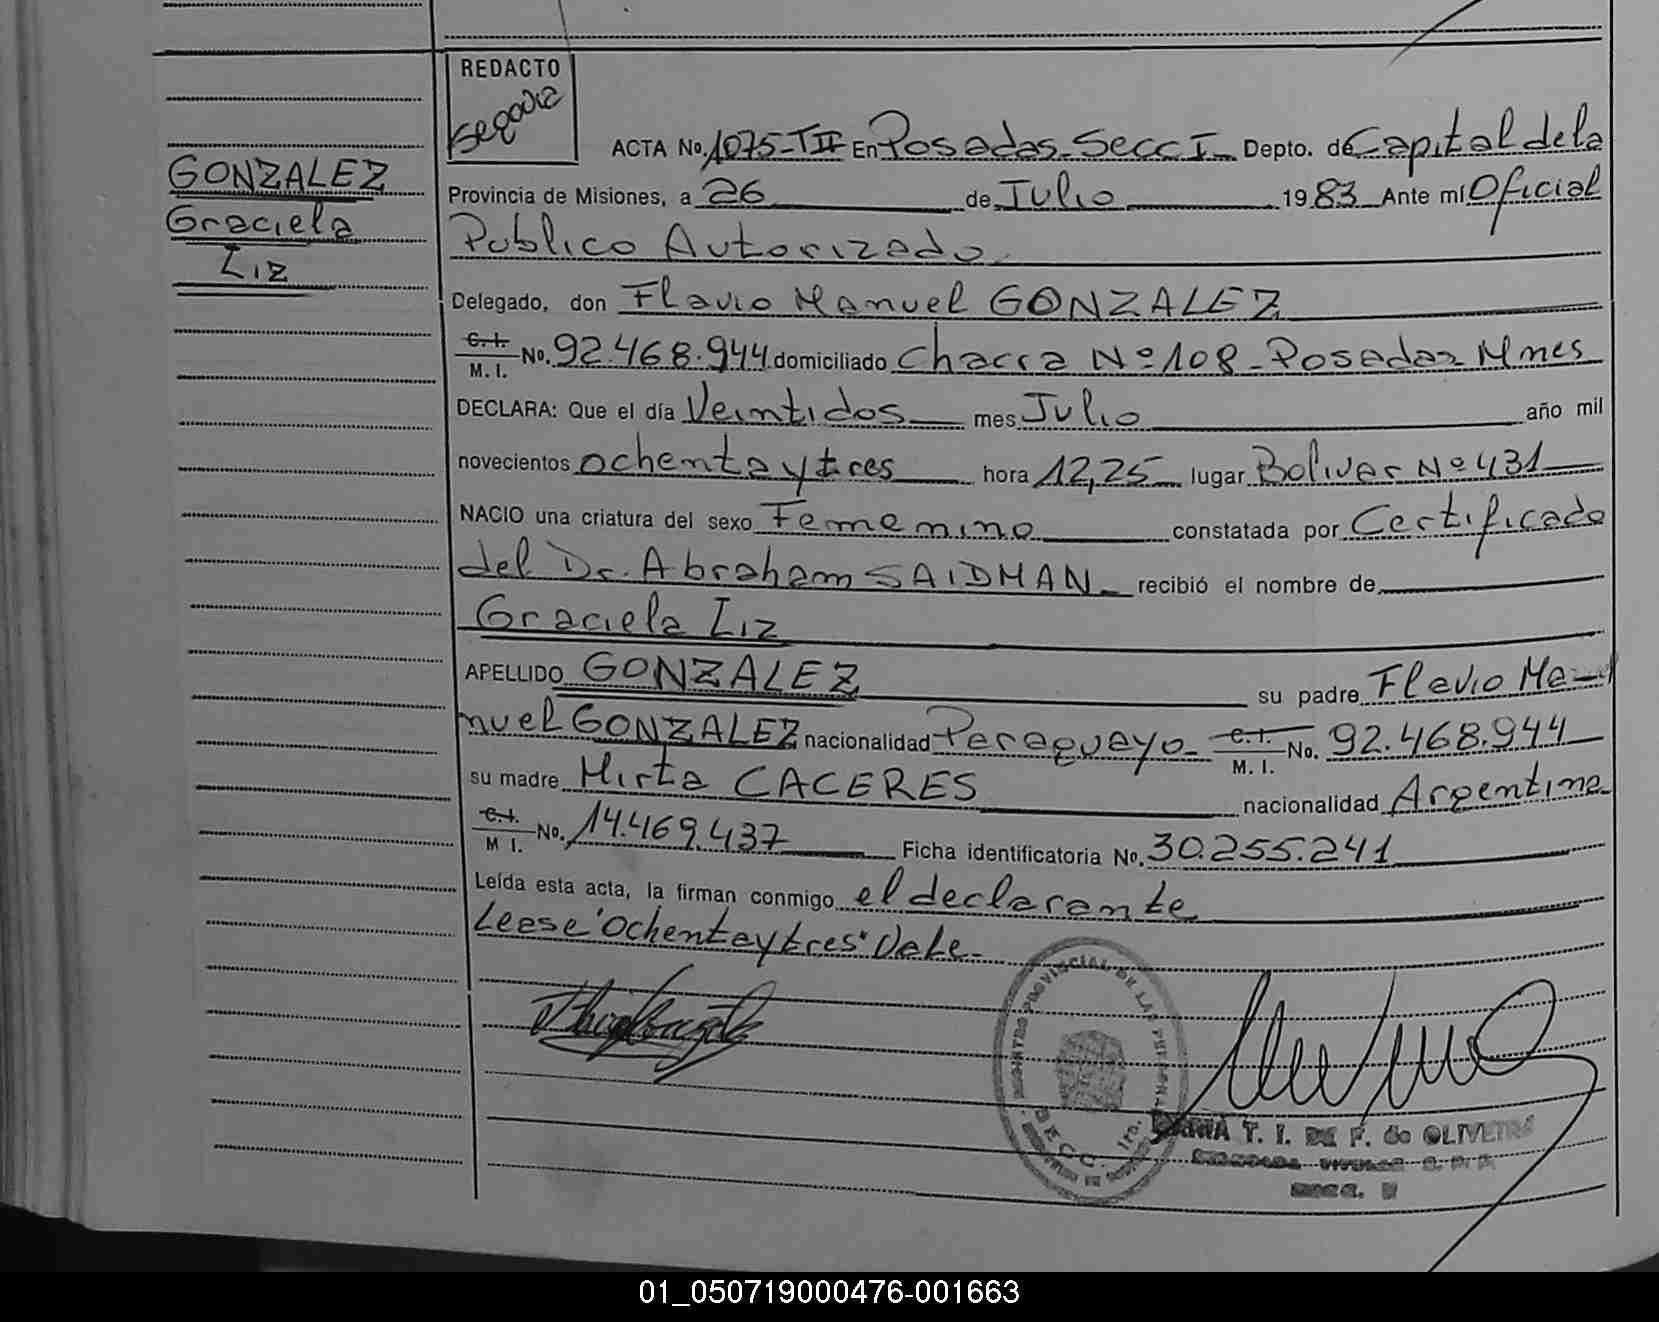 REDACTO
Segovia
GONZALEZ
Graciela
Liz
ACTA No. 1075-TII En Posadas-Secc I Depto. de Capital de la
Provincia de Misiones, a 26 de Julio 1983 Ante mí Oficial
Publico Autorizado
Delegado, don Flavio Manuel GONZALEZ
C. I.
M. I. No. 92.468.944 domiciliado Chacra Nº 108-Posadas Mnes
DECLARA: Que el día Veintidos mes Julio año mil
novecientos ochentaytres hora 12,25 lugar Bolivar Nº 431
NACIO una criatura del sexo Femenino constatada por Certificado
del Dr. Abraham SAIDMAN recibió el nombre de
Graciela Liz
APELLIDO GONZALEZ su padre Flavio Ma-
nuel GONZALEZ nacionalidad Paraguayo C. I.
M. I. No. 92.468.944
su madre Mirta CACERES nacionalidad Argentina
C. I.
M I. No. 14.469.437 Ficha identificatoria No. 30.255.241
Leída esta acta, la firman conmigo el declarante
Leese "Ochentaytres" Vale-
REGISTRO PROVINCIAL DE LAS PERSONAS
SECC. 1ra.
T. I. DE F. de OLIVEIRA
01_050719000476-001663